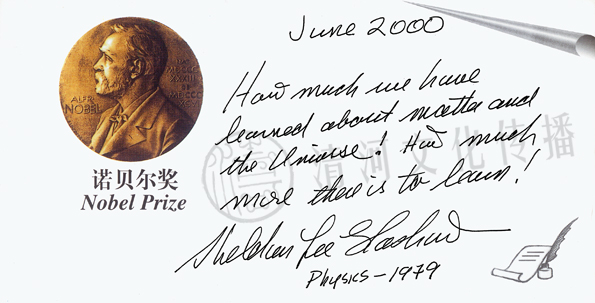 June 2000
ALFR.
NOBEL
诺贝尔奖
Nobel Prize
How much we have
learned about matter and
the Universe! How much
more there is to learn!
Sheldon Lee Glashow
Physics - 1979
清河文化传播